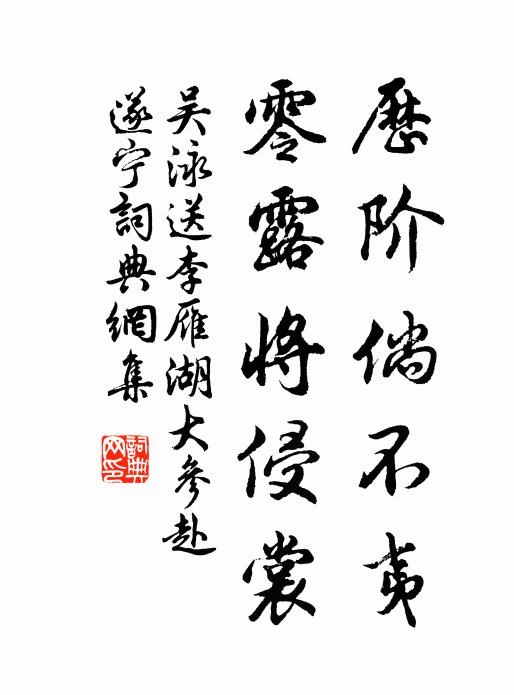 歷阶倘不夷
零露將侵裳
吴泳送李雁湖大參赴
遂宁詞典網集
詞典网印